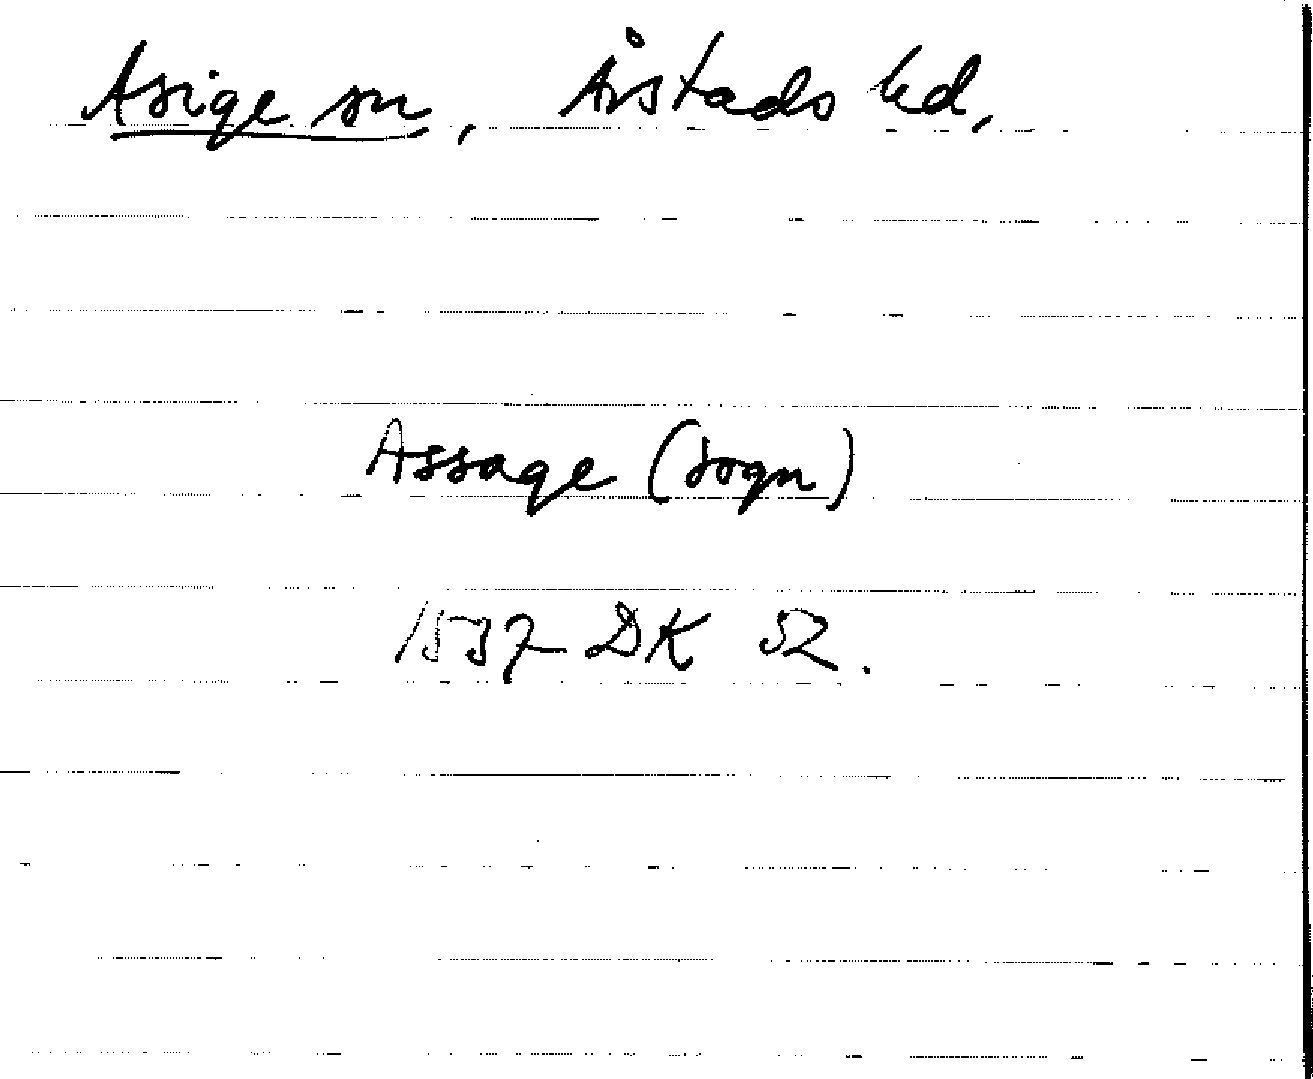 Asige sn, Årstads hd,
Assage (sogn)
1537 DK 52.